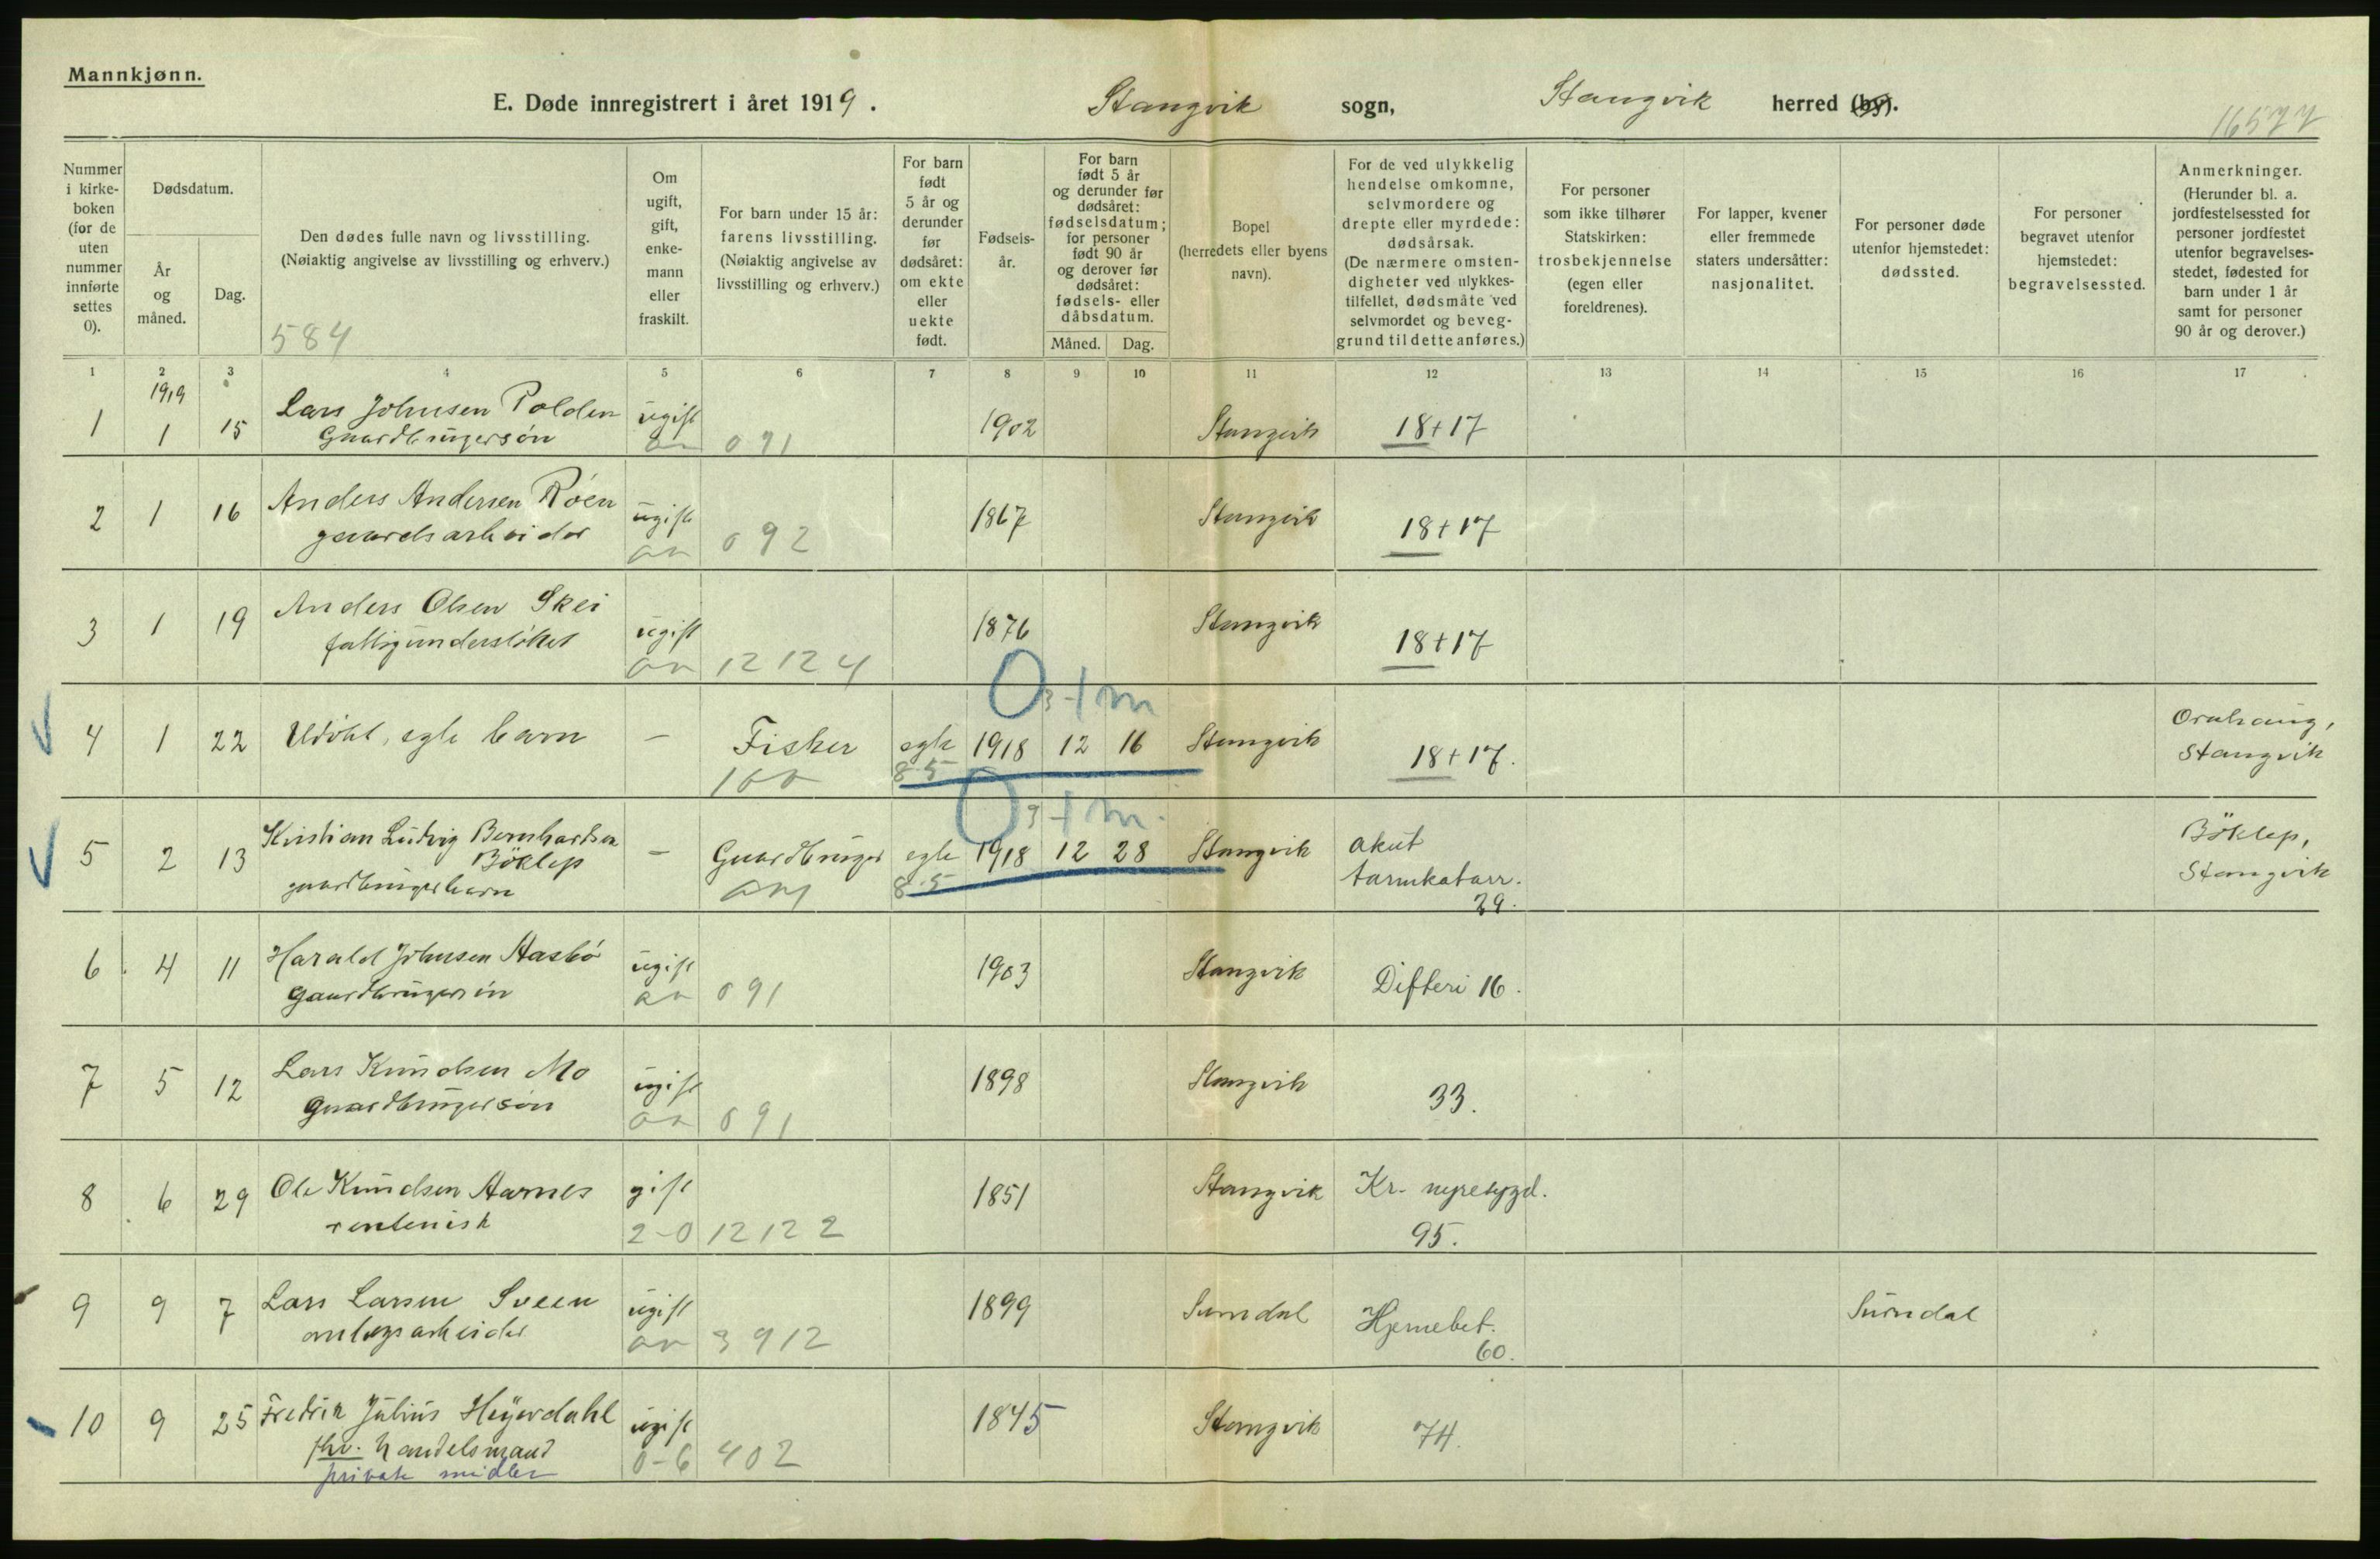 Mannkjønn.
E. Døde innregistrert i året 1919. Stangvik sogn, Stangvik herred (by).
16577
Nummer i kirke-boken (for de uten nummer innførte settes 0).
Dødsdatum.
År og måned.
Dag.
Den dødes fulle navn og livsstilling.
(Nøiaktig angivelse av livsstilling og erhverv.)
584
Om ugift, gift, enke-mann eller fraskilt.
For barn under 15 år: farens livsstilling. (Nøiaktig angivelse av livsstilling og erhverv.)
For barn født 5 år og derunder før dødsåret: om ekte eller uekte født.
Fødselsår.
For barn født 5 år og derunder før dødsåret: fødselsdatum; for personer født 90 år og derover før dødsåret: fødsels- eller dåbsdatum.
Måned. Dag.
Bopel (herredets eller byens navn).
For de ved ulykkelig hendelse omkomne, selvmordere og drepte eller myrdede: dødsårsak. (De nærmere omsten-digheter ved ulykkes-tilfellet, dødsmåte ved selvmordet og beveg-grund til dette anføres.)
For personer som ikke tilhører Statskirken: trosbekjennelse (egen eller foreldrenes).
For lapper, kvener eller fremmede staters undersåtter: nasjonalitet.
For personer døde utenfor hjemstedet: dødssted.
For personer begravet utenfor hjemstedet: begravelsessted.
Anmerkninger. (Herunder bl. a. jordfestelsessted for personer jordfestet utenfor begravelses-stedet, fødested for barn under 1 år samt for personer 90 år og derover.)
1 2 3 4 5 6 7 8 9 10 11 12 13 14 15 16 17
1919
1 1 15 Lars Johnsen Polden ugift 1902 Stangvik 18+17
Gaardbrugersøn 091
2 1 16 Anders Andersen Røen ugift 1867 Stangvik 18+17
gaardsarbeider 092
3 1 19 Anders Olsen Skei ugift 1876 Stangvik 18+17
fattigunderstøttet 12124
0 3-1 m
4 1 22 Udøbt, egte barn – Fisker egte 1918 12 16 Stangvik 18+17. Stangvik
8-5
0 3-1 m.
5 2 13 Kristian Ludvig Bernhardsen – Gaardbruger egte 1918 12 28 Stangvik akut Bøklep,
Bøklep tarmkatarr. Stangvik
gaardbrugerbarn 8-5 29.
6 4 11 Harald Johnsen Aasbø ugift 1903 Stangvik Difteri 16.
Gaardbrugersøn 091
7 5 12 Lars Knudsen Mo ugift 1898 Stangvik 33.
Gaardbrugersøn 091
8 6 29 Ole Knudsen Aarnes gift 1851 Stangvik Kr. nyresygd.
rentenist 2-0 12122 95.
9 9 7 Lars Larsen Sveen ugift 1899 Surndal Hjernebet. Surndal
anlægsarbeider 3912 60.
10 9 25 Fredrik Julius Heyerdahl ugift 1845 Stangvik 74.
fhv. handelsmand 0-6 402
private midler